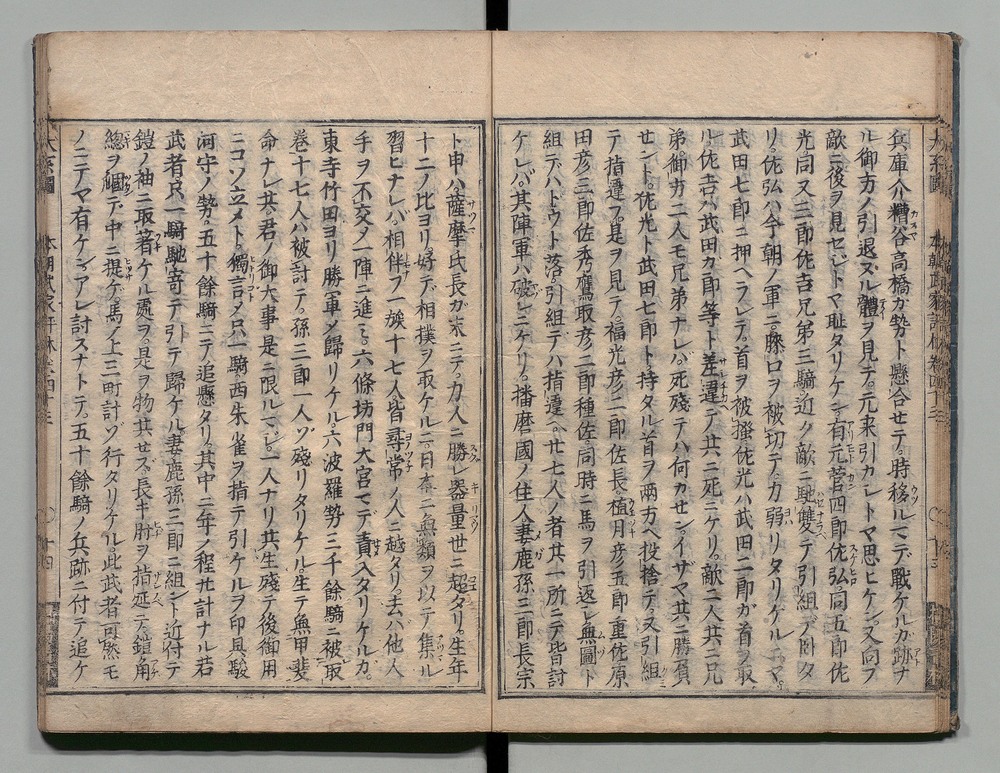 兵庫介糟谷高橋ガ勢ト懸合セテ。時移ルマデ戰ケルガ。跡ナ
ル御方ノ引退ヌル體ヲ見テ。元来引カレトマ思ヒケン。又向フ
敵ニ後ヲ見セジトマ耻タリケン。有元菅四郎佐弘。同五郎佐
光。同又三郎佐吉。兄弟三騎。近ク敵ニ馳雙テ引組デ臥タ
リ。佐弘ハ今朝ノ軍ニ膝口ヲ被切テ。力弱リタリケルニマ
武田七郎ニ押ヘラレテ。首ヲ被掻。佐光ハ武田二郎ガ首ヲ取
ル。佐吉ハ武田カ郎等ト差違テ共ニ死ニケリ。敵二人共ニ兄
弟。御方二人モ兄弟ナレバ。死殘テハ何カセン。イザマ共ニ勝負
セント。佐光ト武田七郎ト。持タル首ヲ兩方ヘ投捨テ。又引組
テ指違フ。是ヲ見テ。福光彦二郎佐長。植月彦五郎重佐。原
田彦三郎佐秀。鷹取彦二郎種佐。同時ニ馬ヲ引返シ。無圖ト
組デハドウト落。引組テハ指違ヘ。廿七人ノ者共一所ニテ皆討
ケレバ。其陣軍ハ破レニケリ。播磨國ノ住人妻鹿孫三郎長宗
ト申ハ。薩摩氏長ガ末ニテ。力人ニ勝レ。器量世ニ超タリ。生年
十二ノ比ヨリ好デ相撲ヲ取ケルニ。日本ニ無類ヲ以テ集ル
習ヒナレバ。相伴フ一族十七人。皆尋常ノ人ニ越タリ。去ハ他人
手ヲ不交ノ一陣ニ進ミ。六條坊門大宮マデ責入タリケルカ。
東寺竹田ヨリ勝軍メ歸リケル。六波羅勢三千餘騎ニ被取
巻。十七人ハ被討テ。孫三郎一人ゾ殘リタリケル。生テ無甲斐
命ナレ共。君ノ御大事是ニ限ルマジ。一人ナリ共生殘テ。後御用
ニコソ立メト獨言メ。只一騎西朱雀ヲ指テ引ケルヲ。印具駿
河守ノ勢。五十餘騎ニテ追懸タリ。其中ニ年ノ程廿計ナル若
武者。只一騎馳寄テ。引テ歸ケル妻鹿孫三郎ニ組ント。近付テ
鎧ノ袖ニ取著ケル處ヲ。是ヲ物共セズ。長キ肘ヲ指延テ。鎧角
總ヲ爴デ中ニ提ゲ。馬ノ上三町計ゾ行タリケル。此武者可然モ
ノニテマ有ケン。アレ討スナトテ。五十餘騎ノ兵跡ニ付テ追ケ
大系圖
十四
十三